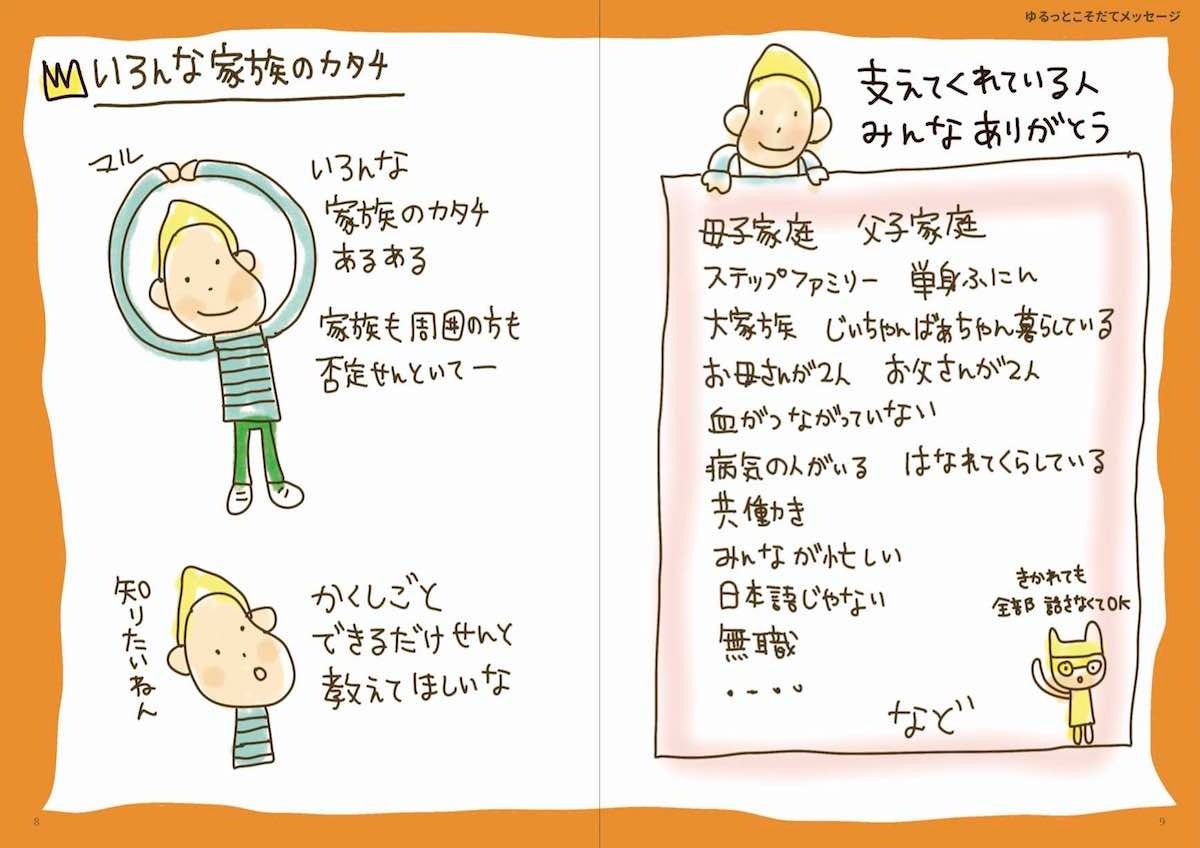 ゆるっとこそだてメッセージ
いろんな家族のカタチ
マル
いろんな
家族のカタチ
あるある
家族も周囲の方も
否定せんといてー
知りたいねん
かくしごと
できるだけせんと
教えてほしいな
8
支えてくれている人
みんなありがとう
母子家庭 父子家庭
ステップファミリー 単身ふにん
大家族 じいちゃんばぁちゃん暮らしている
お母さんが2人 お父さんが2人
血がつながっていない
病気の人がいる はなれてくらしている
共働き
みんなが忙しい
日本語じゃない
無職
・・・・・
など
きかれても
全部 話さなくてOK
9